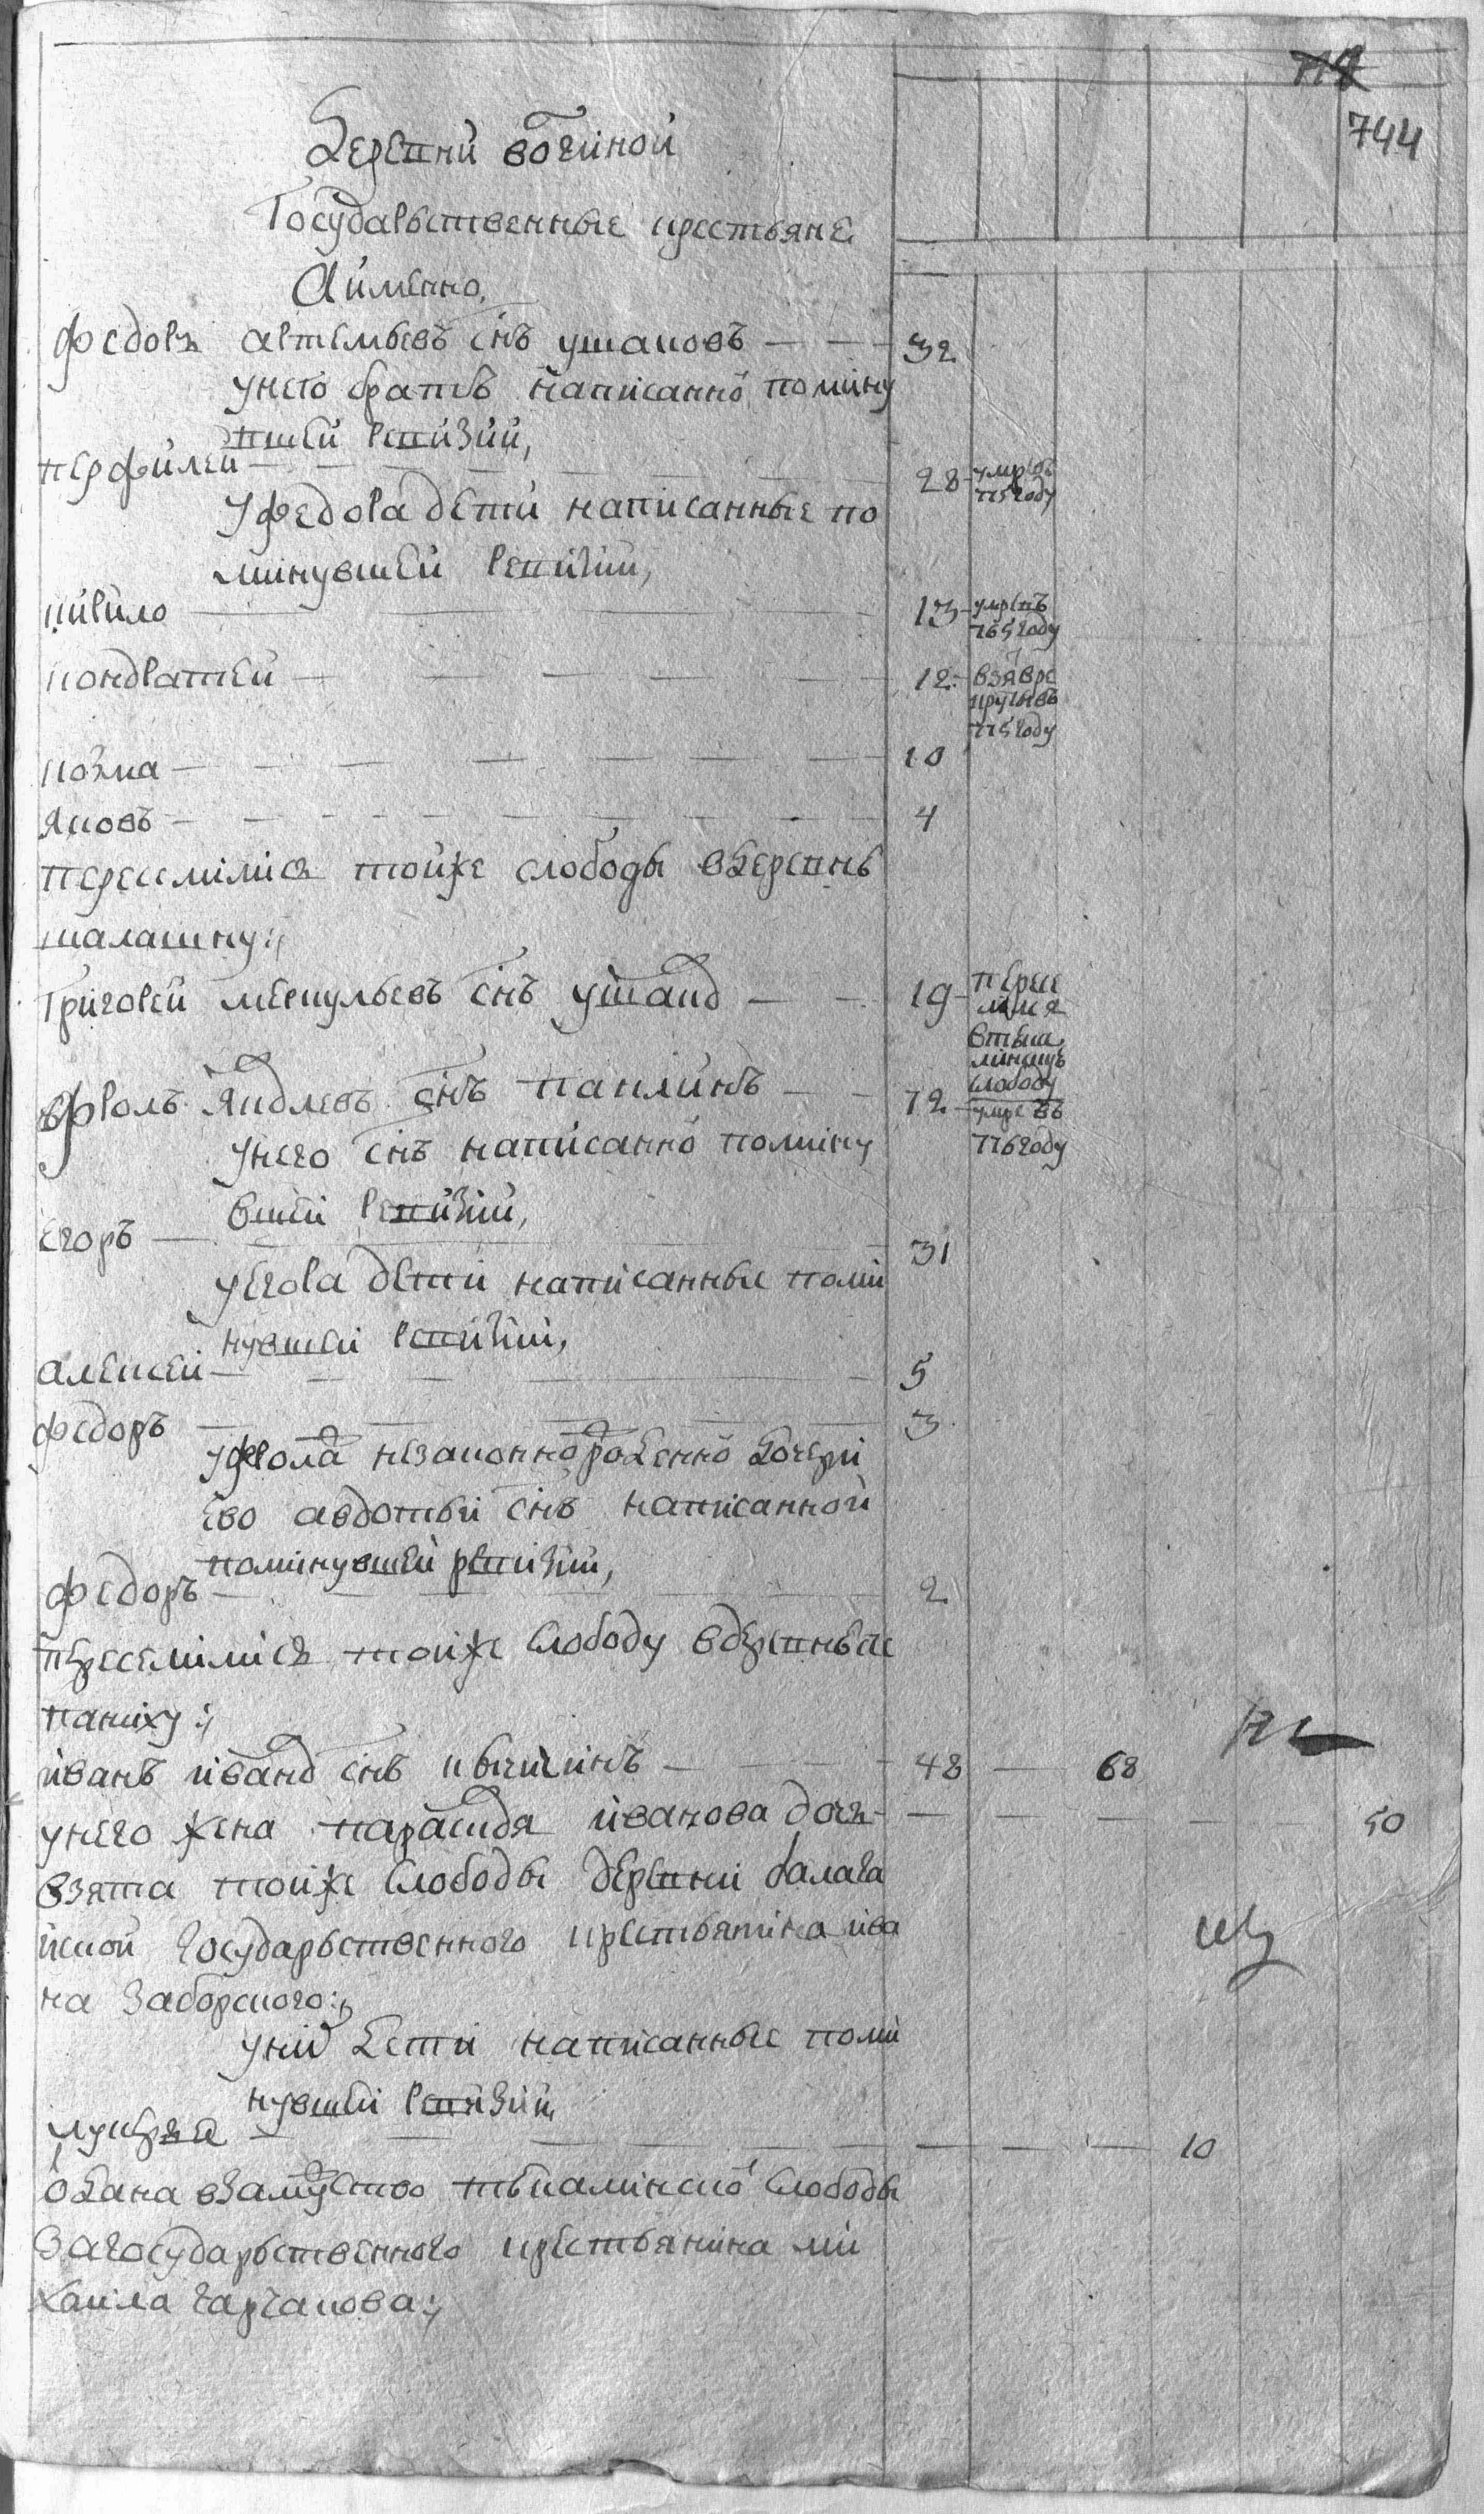 744
деревни вотиной
Государственные крестьяне
А имянно,
Федоръ артемьевъ снъ ушаковъ 32
у него братъ написанно по мину
вшей ревизии,
перфилей 28 умре въ 775 году
у Федора дети написанные по
минувшей ревизии,
кирило 13 умре въ 765 году
кондратей 12 взя в ре круты въ 775 году
козма 10
яковъ 4
переселился тойже слободы в деревнь
шалашну
Григорей меркульевъ снъ ушако 19 пересе лился
слободу
Фролъ яковлевъ снъ паклинъ 72 умре въ 776 году
у него снъ написанно по мину
вшей ревизии,
егоръ 31
у егора дети написанные по ми
нувшей ревизии,
алексей 5
федоръ 3
у Фрола незаконно рожденно дочери
ево авдотьи снъ написанной
по минувшей ревизии,
федоръ 2
переселился тойже слободу в деревнь
паниху
иванъ ивано снъ 48 68
у него жена парасковя иванова дочь 50
взята тойже слободы деревни балага
иской государственного крестьянина ива
на заборского
у них дети написанные по ми
нувшей ревизии
лукеря 10
одана в замужство слободы
за государственного крестьянина ми
хаила